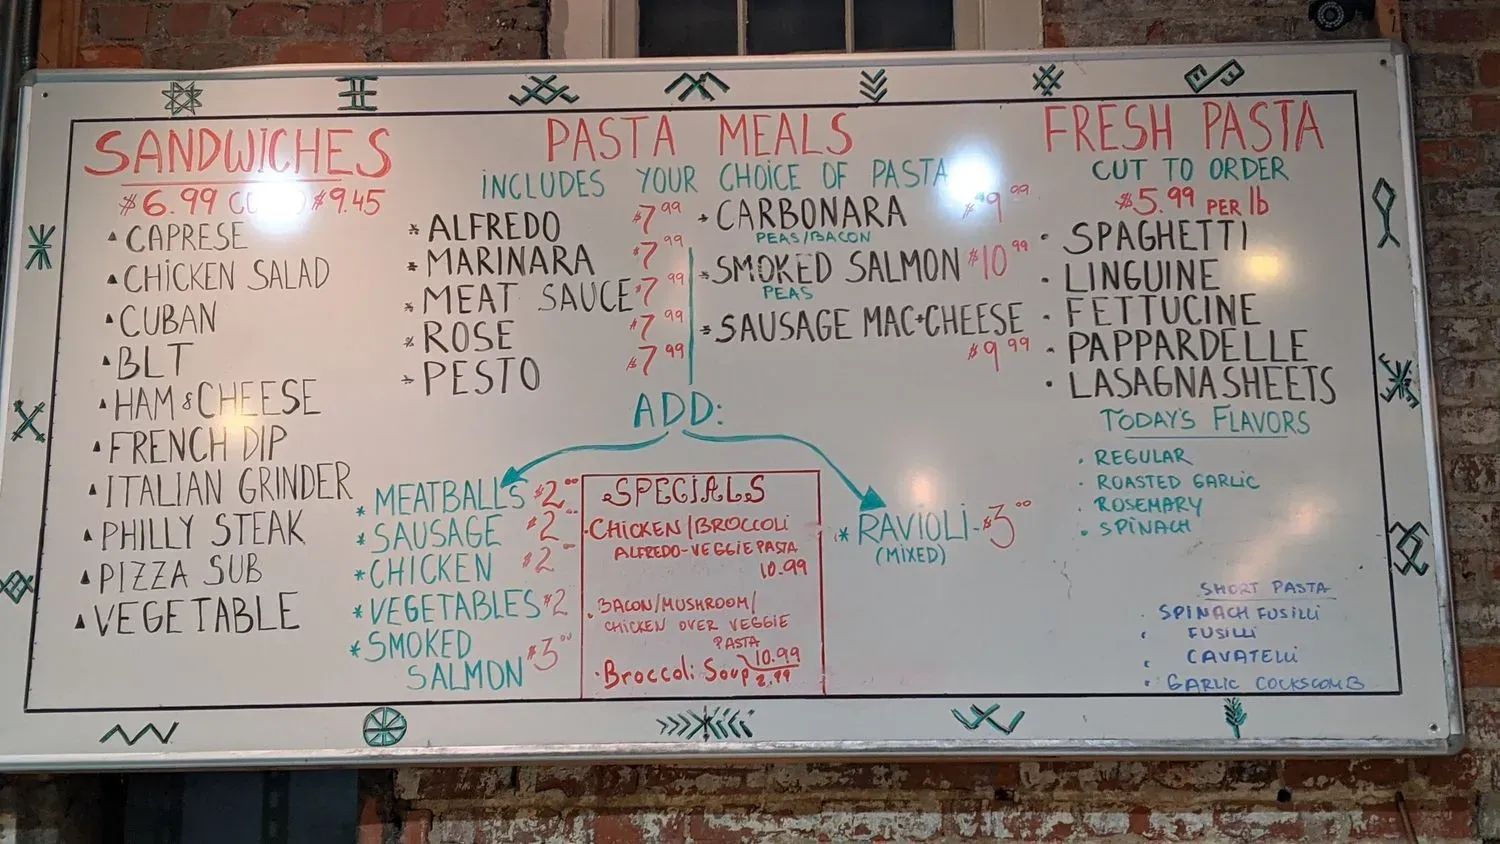 SANDWICHES
$6.99 $9.45
CAPRESE
CHICKEN SALAD
CUBAN
BLT
HAM & CHEESE
FRENCH DIP
ITALIAN GRINDER
PHILLY STEAK
PIZZA SUB
VEGETABLE
PASTA MEALS
INCLUDES YOUR CHOICE OF PASTA
* ALFREDO $7.99
* MARINARA $7.99
* MEAT SAUCE $7.99
* ROSE $7.99
* PESTO $7.99
* CARBONARA $9.99
PEAS/BACON
* SMOKED SALMON $10.99
PEAS
* SAUSAGE MAC+CHEESE
$9.99
ADD:
* MEATBALLS $2.00
* SAUSAGE $2
* CHICKEN $2
* VEGETABLES $2
* SMOKED
SALMON $3.00
SPECIALS
• CHICKEN/BROCCOLI
ALFREDO-VEGGIE PASTA
10.99
• BACON/MUSHROOM/
CHICKEN OVER VEGGIE
PASTA
10.99
• Broccoli Soup 2.99
* RAVIOLI-$3.00
(MIXED)
FRESH PASTA
CUT TO ORDER
$5.99 PER lb
• SPAGHETTI
• LINGUINE
• FETTUCINE
• PAPPARDELLE
• LASAGNA SHEETS
TODAY'S FLAVORS
• REGULAR
• ROASTED GARLIC
• ROSEMARY
• SPINACH
SHORT PASTA
• SPINACH FUSILLI
• FUSILLI
• CAVATELLI
• GARLIC COCKSCOMB